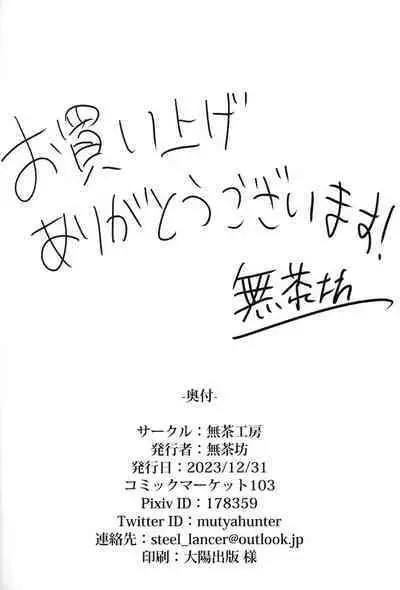 お買い上げ
ありがとうございます!
無茶坊
-奥付-
サークル：無茶工房
発行者：無茶坊
発行日：2023/12/31
コミックマーケット103
Pixiv ID：178359
Twitter ID：mutyahunter
連絡先：steel_lancer@outlook.jp
印刷：大陽出版 様